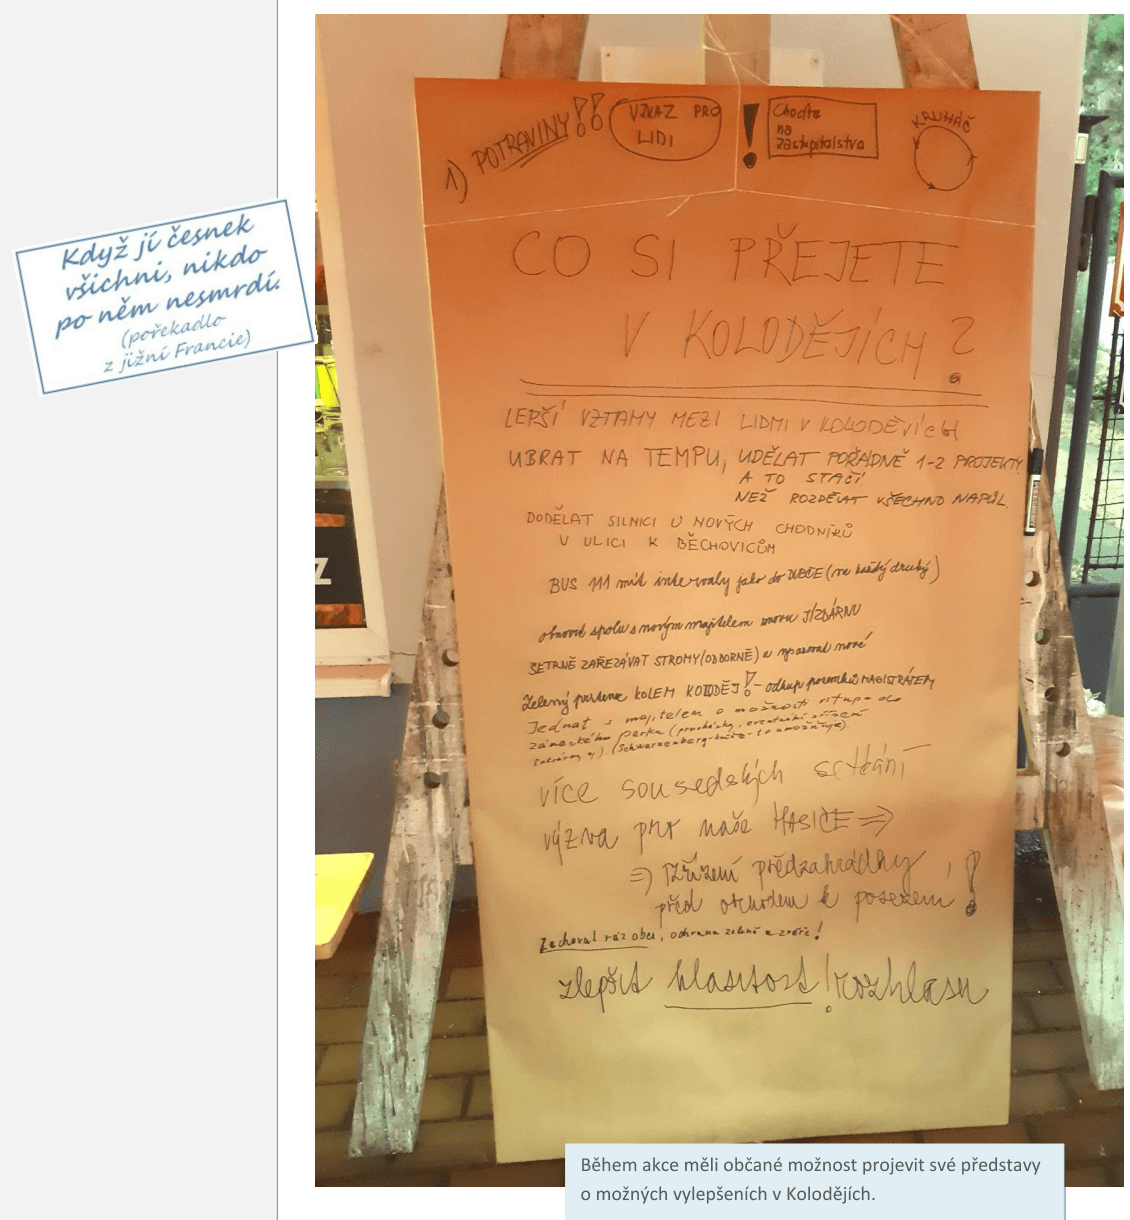 Když jí česnek
všichni, nikdo
po něm nesmrdí.
(pořekadlo
z jižní Francie)
1) POTRAVINY!!
VZKAZ PRO
LIDI
!
Choďte
na
zastupitelstva
KRUHÁČ
CO SI PŘEJETE
V KOLODĚJÍCH?
LEPŠÍ VZTAHY MEZI LIDMI V KOLODĚJÍCH
UBRAT NA TEMPU, UDĚLAT POŘÁDNĚ 1-2 PROJEKTY
A TO STAČÍ!
NEŽ ROZDĚLAT VŠECHNO NAPŮL.
DODĚLAT SILNICI U NOVÝCH CHODNÍKŮ
V ULICI K BĚCHOVICŮM
BUS 111 mít intervaly jako do DUBČE (ne každý druhý)
obnovit spolu s novým majitelem znovu JÍZDÁRNU
ŠETRNĚ ZAŘEZÁVAT STROMY (ODBORNĚ) a vysazovat nové
Zelený prstenec KOLEM KOLODĚJ!! - odkup pozemků MAGISTRÁTEM
Jednat s majitelem o možnosti vstupu do
zámeckého parku (procházky, eventuální zřízení
(Schwarzenberg
více sousedských setkání
výzva pro naše HASIČE ⇒
⇒ zřízení předzahrádky
před obchodem k posezení!
Zachovat ráz obce, ochrana zeleně a zvěře!
zlepšit hlasitost! rozhlasu
Během akce měli občané možnost projevit své představy
o možných vylepšeních v Kolodějích.